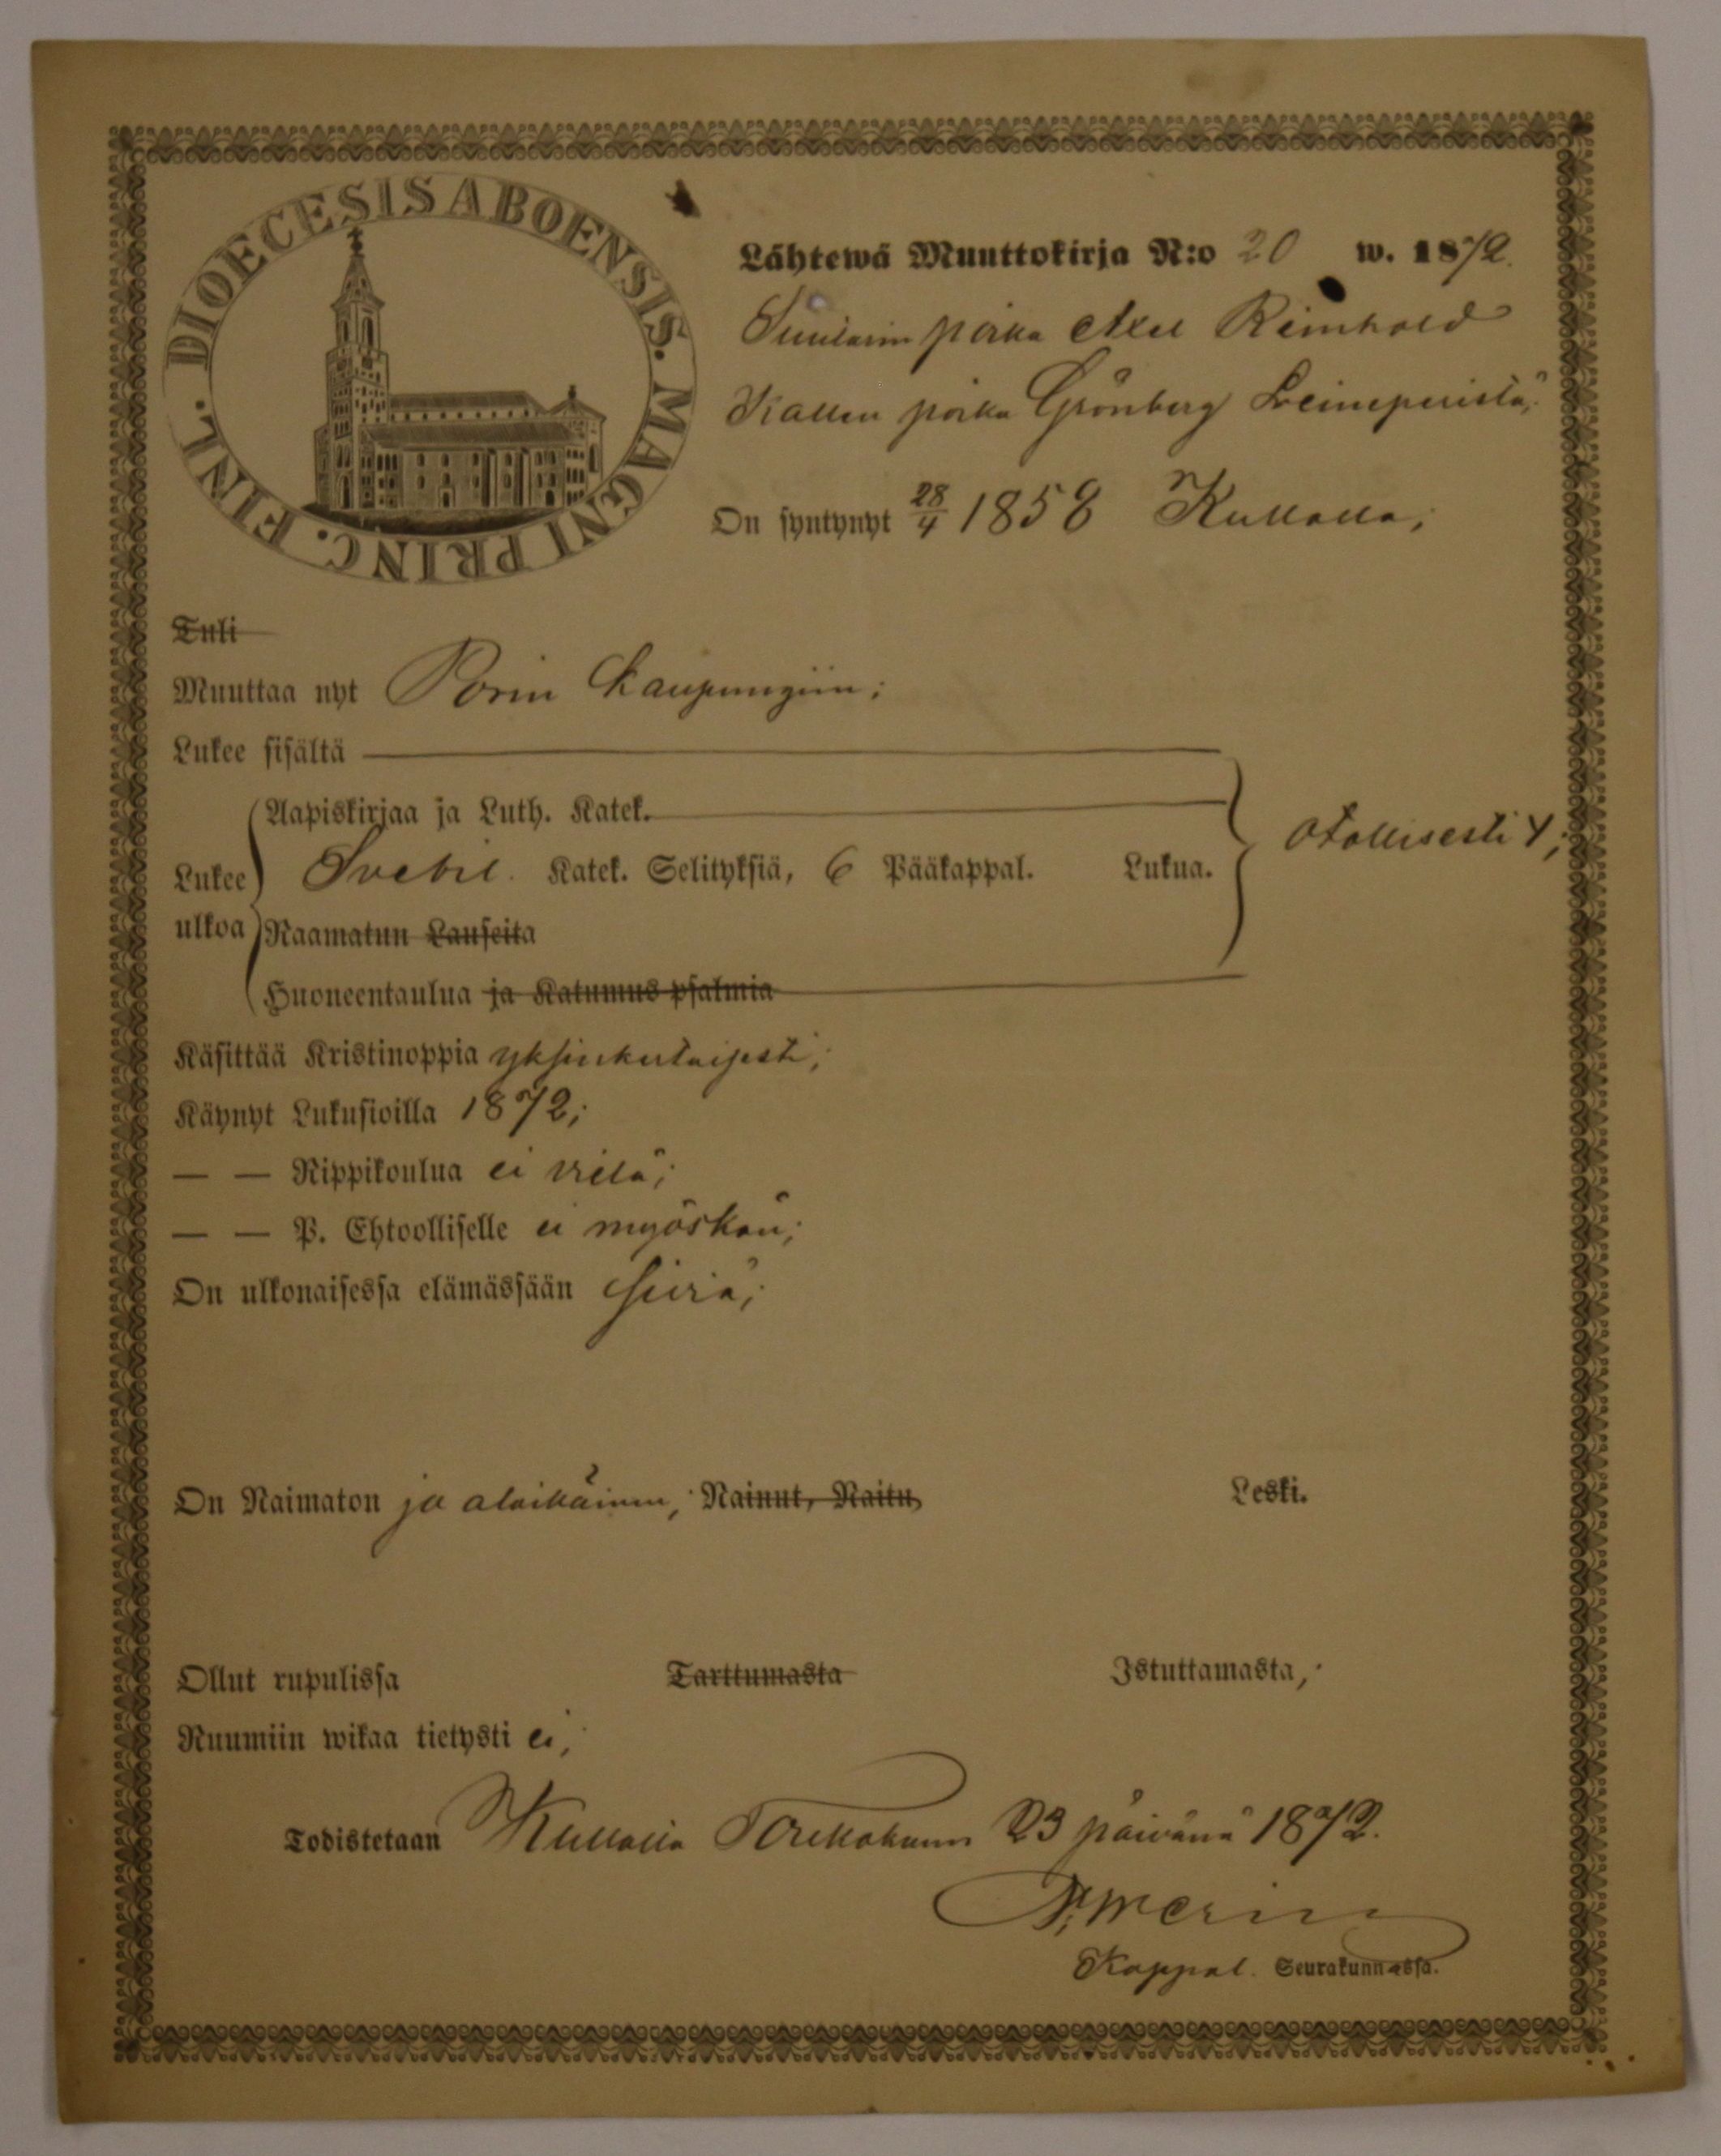 DIOECESIS ABOENSIS. MAGNI PRINC. FINL.
Lähtewä Muuttokirja N:o 20 w. 1872.
poika Axel Reinhold
Kallen poika Grönberg Leineperistä;
On syntynyt 28/4 1858 Kullalla;
Tuli
Muuttaa nyt Porin kaupungiin;
Lukee sisältä
Aapiskirjaa ja Luth. Katek.
Lukee ulkoa
Svebil. Katek. Selityksiä, 6 Pääkappal. Lukua.
otollisesti
Raamatun Lauseita
Huoneentaulua ja Katumus psalmia
Käsittää Kristinoppia yksinkertaisesti;
Käynyt Lukusioilla 1872;
— — Rippikoulua ei vielä;
— — P. Ehtoolliselle ei myöskän;
On ulkonaisessa elämässään siviä;
On Naimaton ja alaikäinen; Nainut, Naitu, Leski.
Ollut rupulissa Tarttumasta Istuttamasta;
Ruumiin wikaa tietysti ei;
Todistetaan Kullalla Toukokuun 23 päivänä 1872.
Kappal. Seurakunnassa.